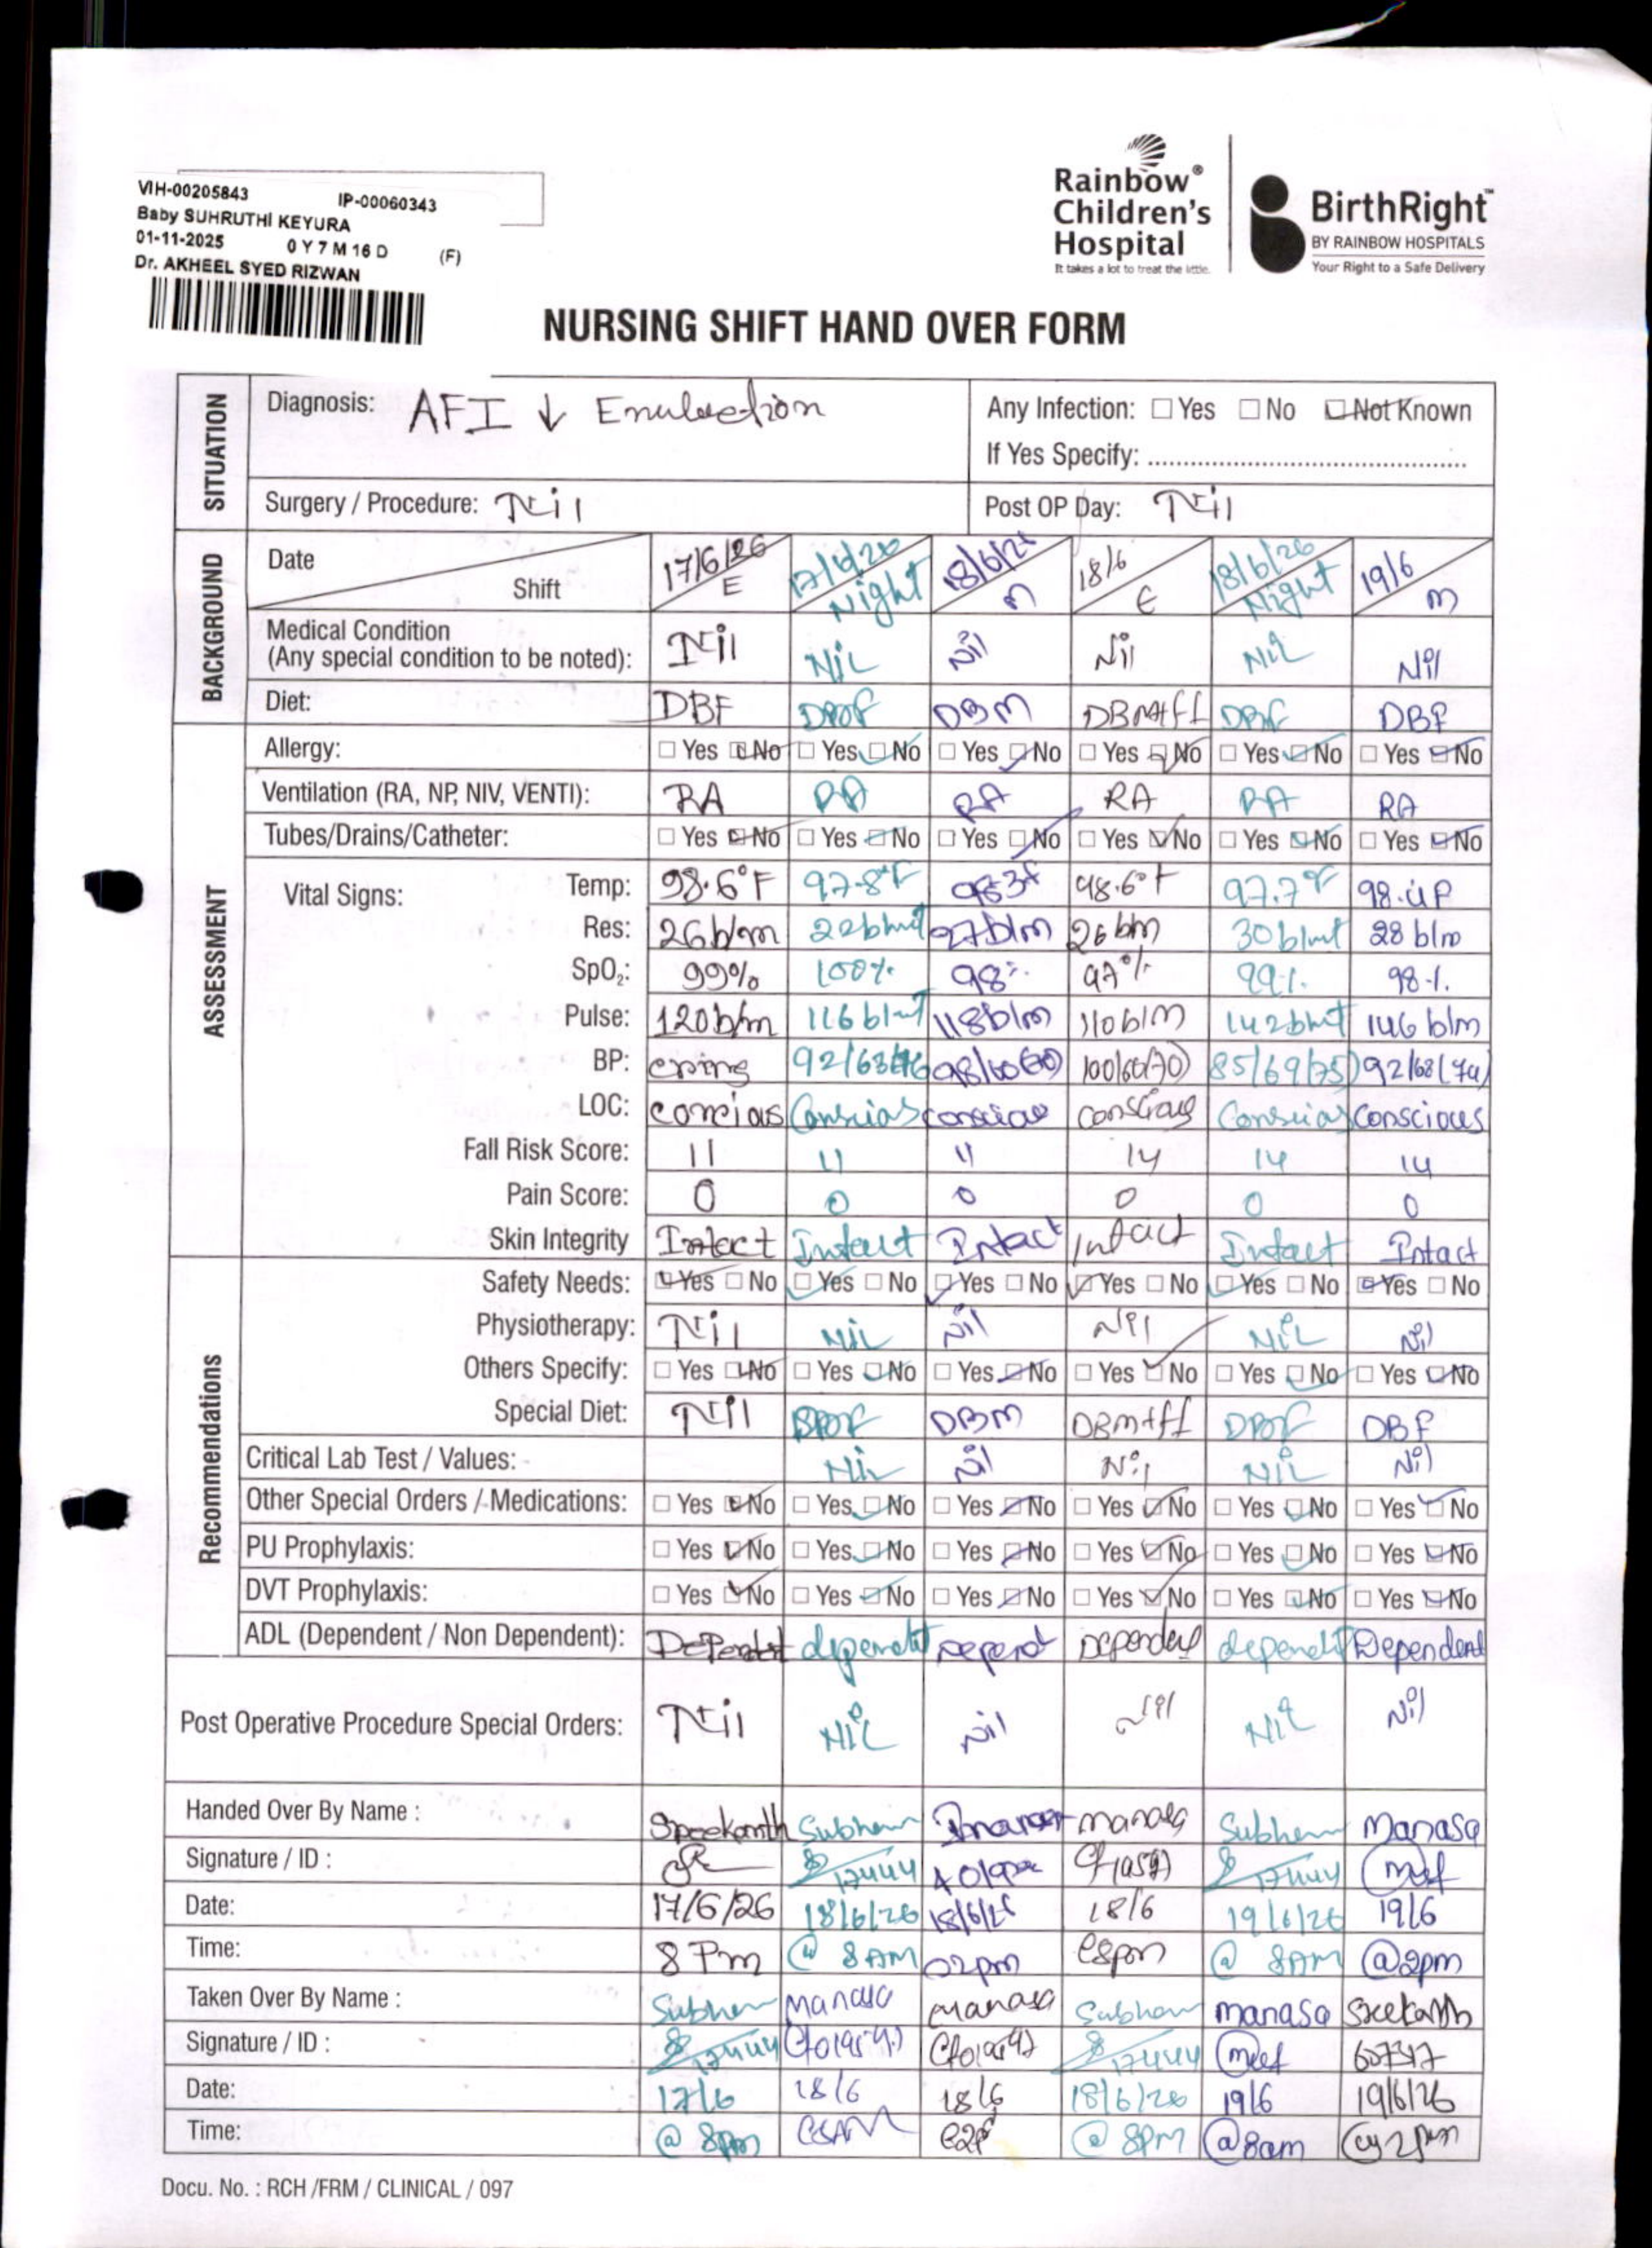 VIH-00205843 IP-00060343
Baby SUHRUTHI KEYURA
01-11-2025 0 Y 7 M 16 D (F)
Dr. AKHEEL SYED RIZWAN
Rainbow® Children's Hospital
It takes a lot to treat the little.
BirthRight™
BY RAINBOW HOSPITALS
Your Right to a Safe Delivery
NURSING SHIFT HAND OVER FORM
SITUATION
Diagnosis: AFI ↓ Any Infection: Yes No Not Known
If Yes Specify:
Surgery / Procedure: Nil Post OP Day: Nil
BACKGROUND
Date 17/6/26 17/6/26 18/6/26 18/6 18/6/26 19/6
Shift E Night M E Night M
Medical Condition
(Any special condition to be noted): Nil NIL Nil Nil NIL Nil
Diet: DBF DBM DBM+FF DBF
ASSESSMENT
Allergy: Yes No Yes No Yes No Yes No Yes No Yes No
Ventilation (RA, NP, NIV, VENTI): RA RA RA RA RA RA
Tubes/Drains/Catheter: Yes No Yes No Yes No Yes No Yes No Yes No
Vital Signs: Temp: 98.6°F 97.8°F 98.3F 98.6°F 97.7°F 98.4F
Res: 26b/m 22b/mt 27b/m 26bm 30b/mt 28 b/m
SpO₂: 99% 100% 98% 97% 99% 98%
Pulse: 120b/m 116b/mt 118b/m 110b/m 142b/mt 146 b/m
BP: 100/60(70) 85/69(75) 92/68(74)
LOC: concious Conscias conscious Conscias Conscious
Fall Risk Score: 11 11 11 14 14 14
Pain Score: 0 0 0 0 0 0
Skin Integrity Intact Intact Intact Intact Intact Intact
Recommendations
Safety Needs: Yes No Yes No Yes No Yes No Yes No Yes No
Physiotherapy: Nil NIL Nil Nil NIL Nil
Others Specify: Yes No Yes No Yes No Yes No Yes No Yes No
Special Diet: Nil DBM DBM+FF DBF
Critical Lab Test / Values: NIL Nil Nil NIL Nil
Other Special Orders / Medications: Yes No Yes No Yes No Yes No Yes No Yes No
PU Prophylaxis: Yes No Yes No Yes No Yes No Yes No Yes No
DVT Prophylaxis: Yes No Yes No Yes No Yes No Yes No Yes No
ADL (Dependent / Non Dependent): Dependent Dependent Dependent
Post Operative Procedure Special Orders: Nil NIL Nil Nil NIL Nil
Handed Over By Name : Sreekanth Subham Manasa Subham Manasa
Signature / ID : 17444 17444
Date: 17/6/26 18/6/26 18/6/26 18/6 19/6/26 19/6
Time: 8 Pm @ 8 AM 02pm @8pm @ 8AM @2pm
Taken Over By Name : Subham Manasa Manasa Subham manasa Sreekanth
Signature / ID : 17444 17444 607347
Date: 17/6 18/6 18/6 18/6/26 19/6 19/6/26
Time: @ 8pm @8AM @2P @ 8PM @8am @ 2pm
Docu. No. : RCH /FRM / CLINICAL / 097